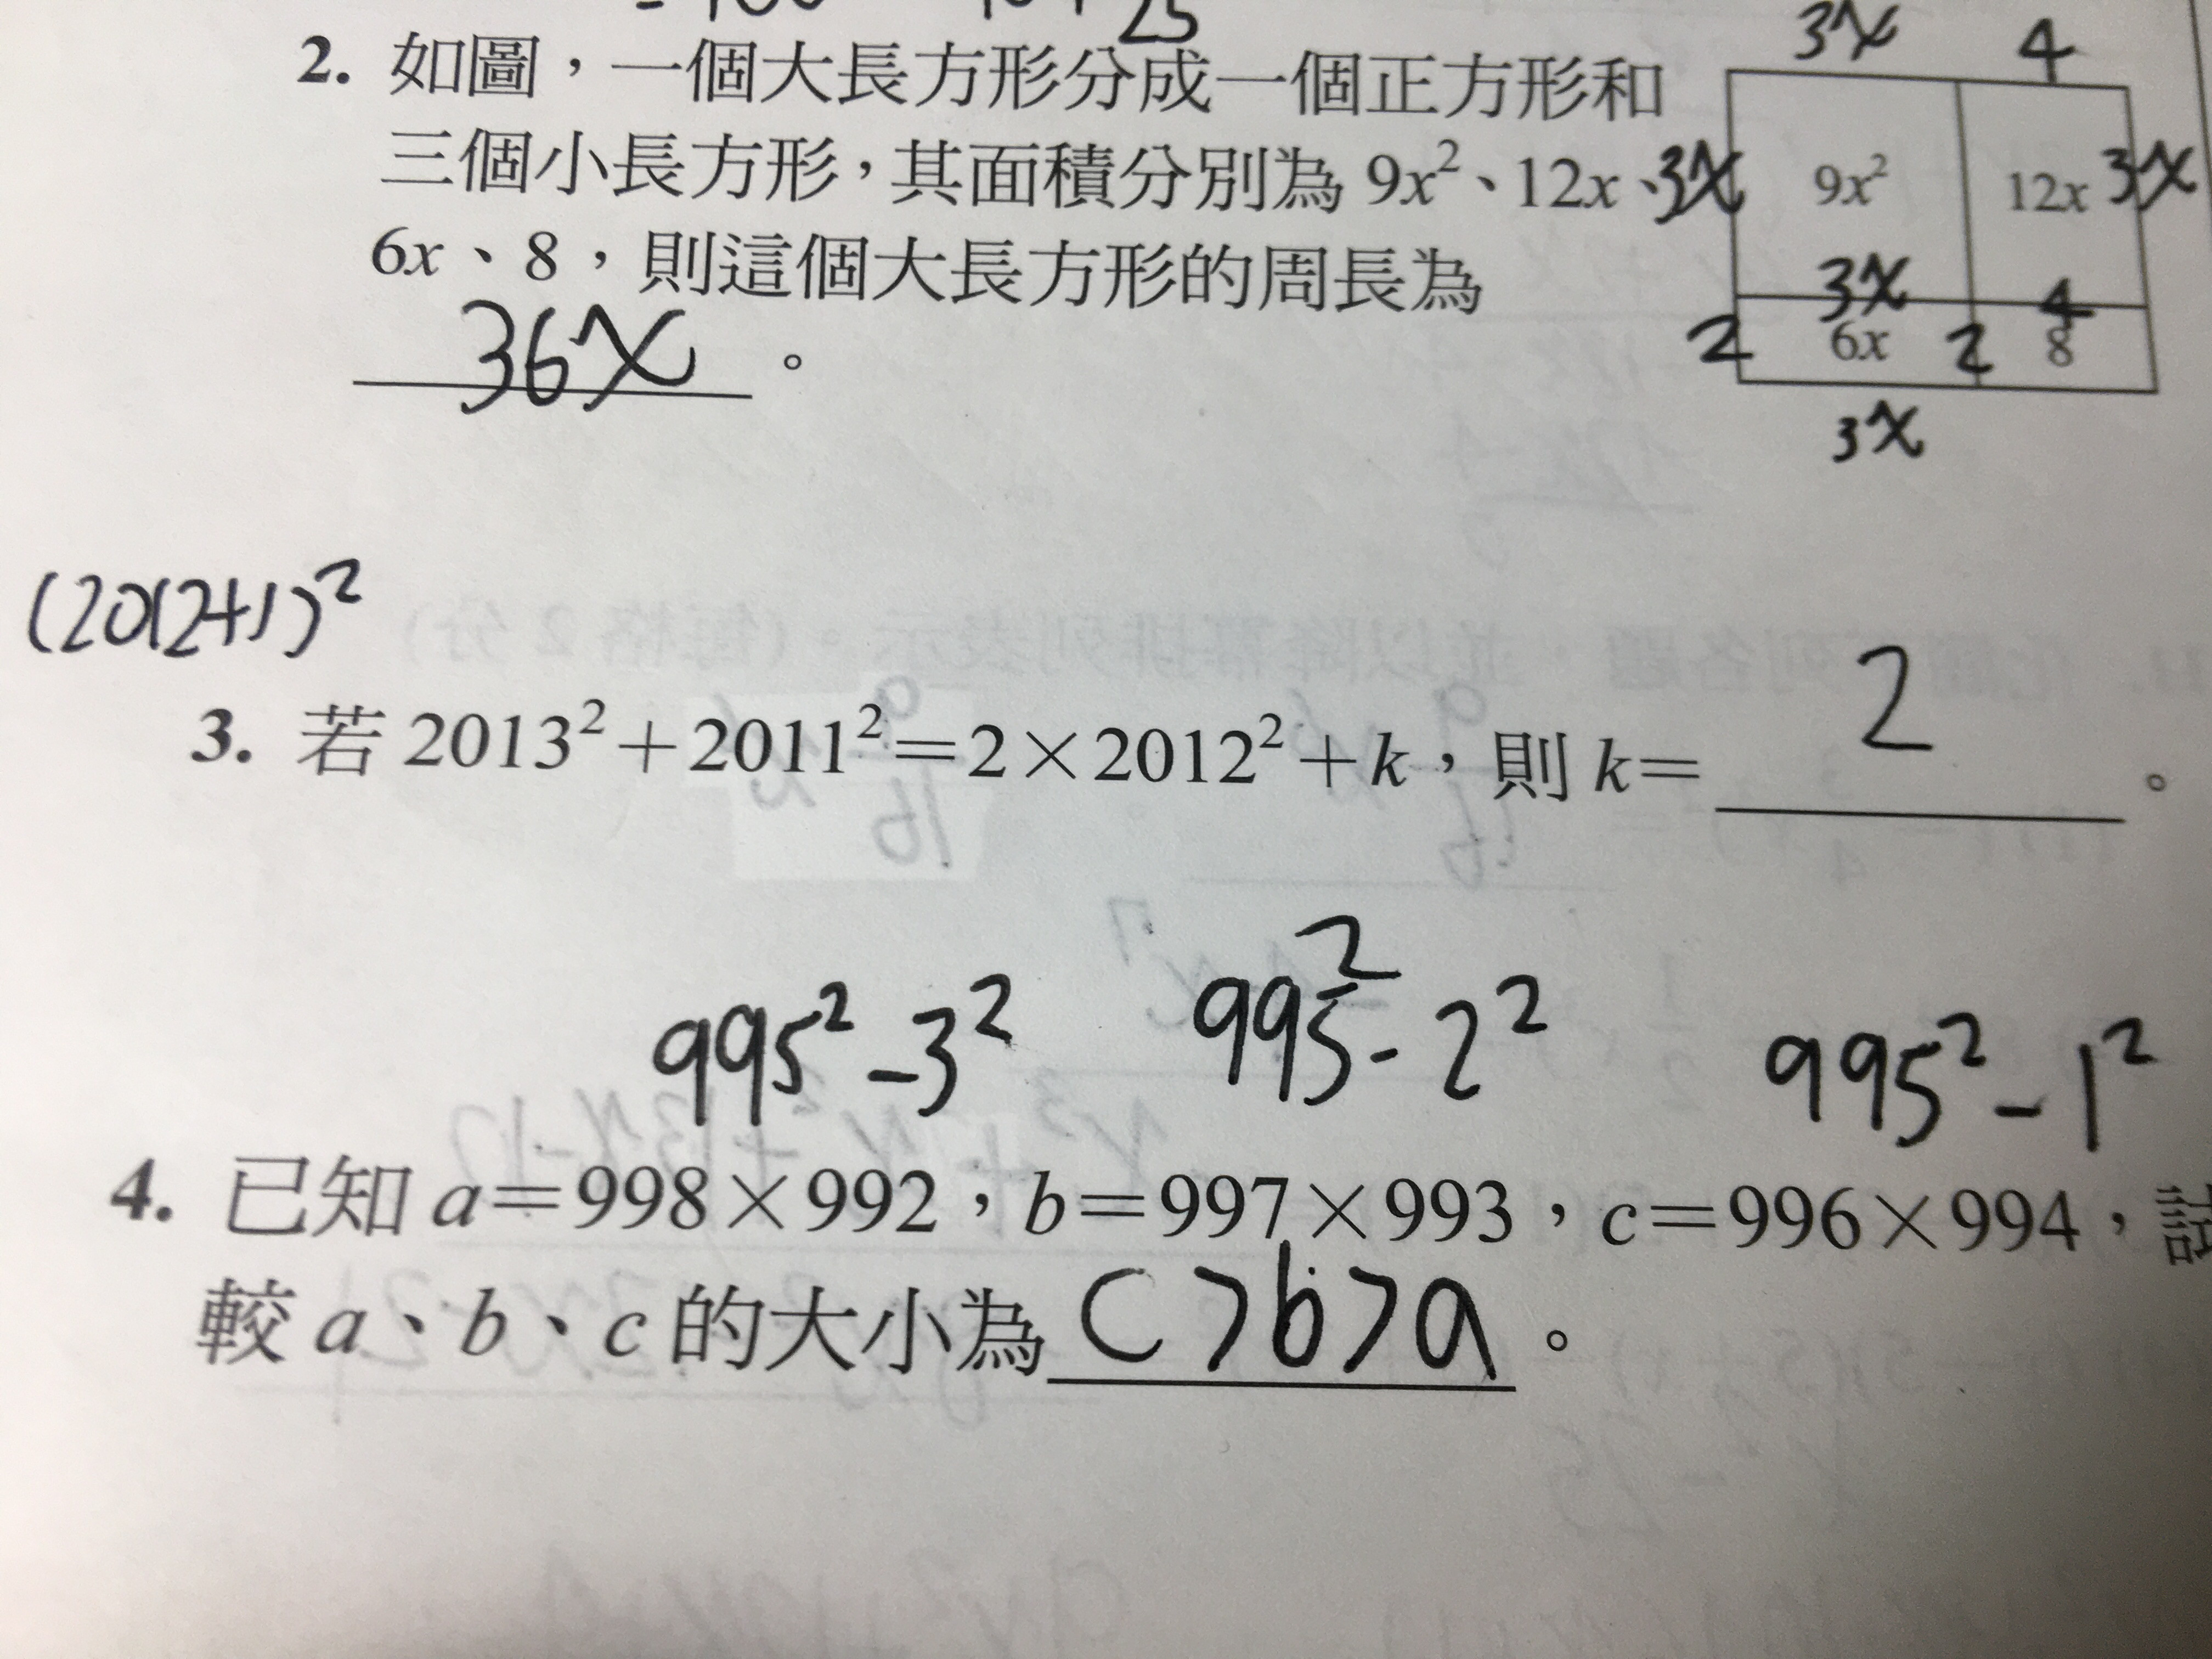 25
2. 如圖，一個大長方形分成一個正方形和
三個小長方形，其面積分別為 9x²、12x、
6x、8，則這個大長方形的周長為
36x 。
3x 4
3x 9x² 12x 3x
3x 4
2 6x 2 8
3x
(2012+1)²
3. 若 2013²+2011²=2×2012²+k，則 k= 2 。
995²-3² 995²-2² 995²-1²
4. 已知 a=998×992，b=997×993，c=996×994，
較 a、b、c 的大小為 c>b>a 。